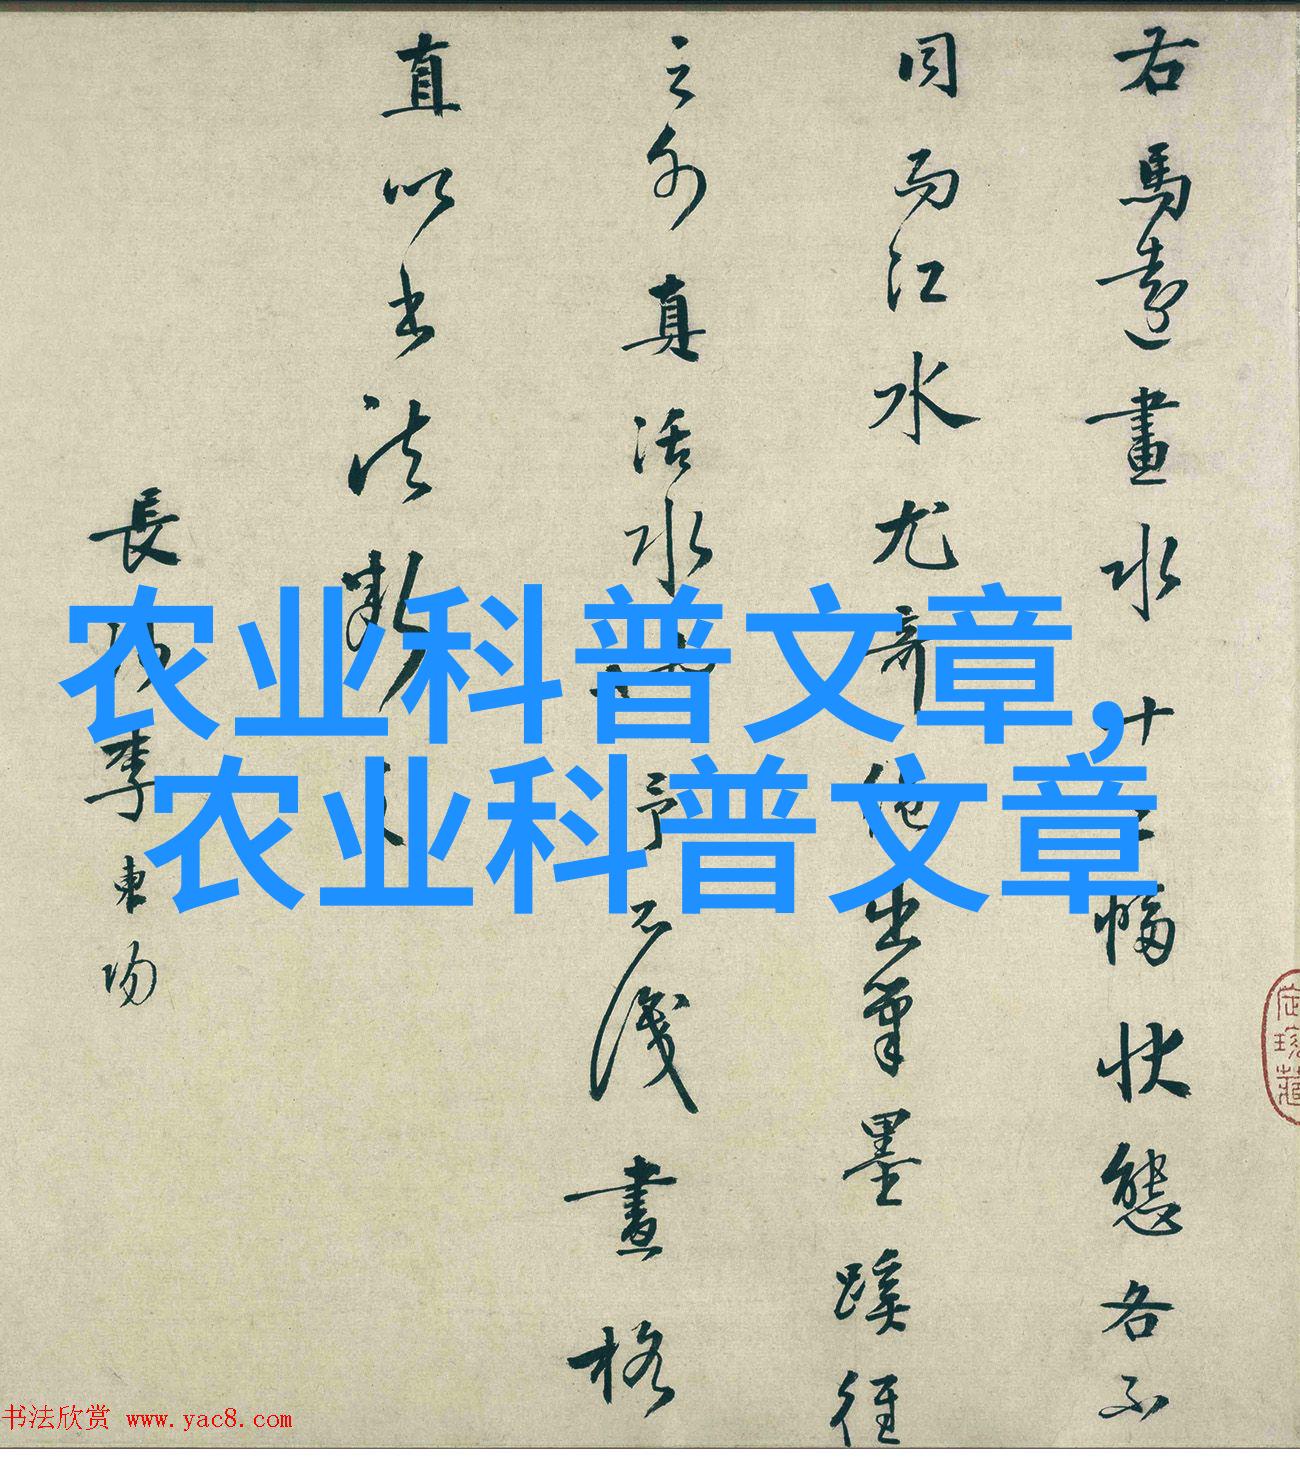 农业科普文章,
农业科普文章
右馬遠畫水十二幅狀態各不
同而江水尤竒絶出筆墨蹊徑
之外真活水也予不識畫格
直以書法
長沙李東陽
珍藏
书法欣赏 www.yac8.com